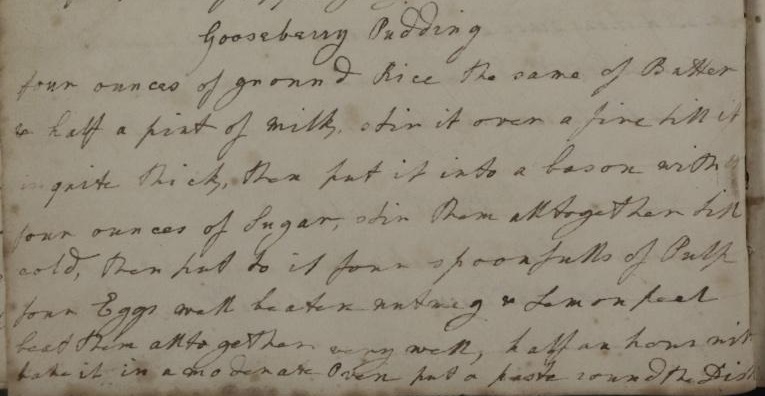 Gooseberry Pudding
four ounces of ground Rice the same of Butter
& half a pint of milk, stir it over a fire till it
is quite thick, then put it into a bason with
four ounces of Sugar, stir them alltogether till
cold, then put to it four spoonfulls of Pulp
four Eggs well beaten nutmeg & Lemon peal
beat them alltogether very well, half an hour will
bake it in a moderate Oven put a paste round the Dish